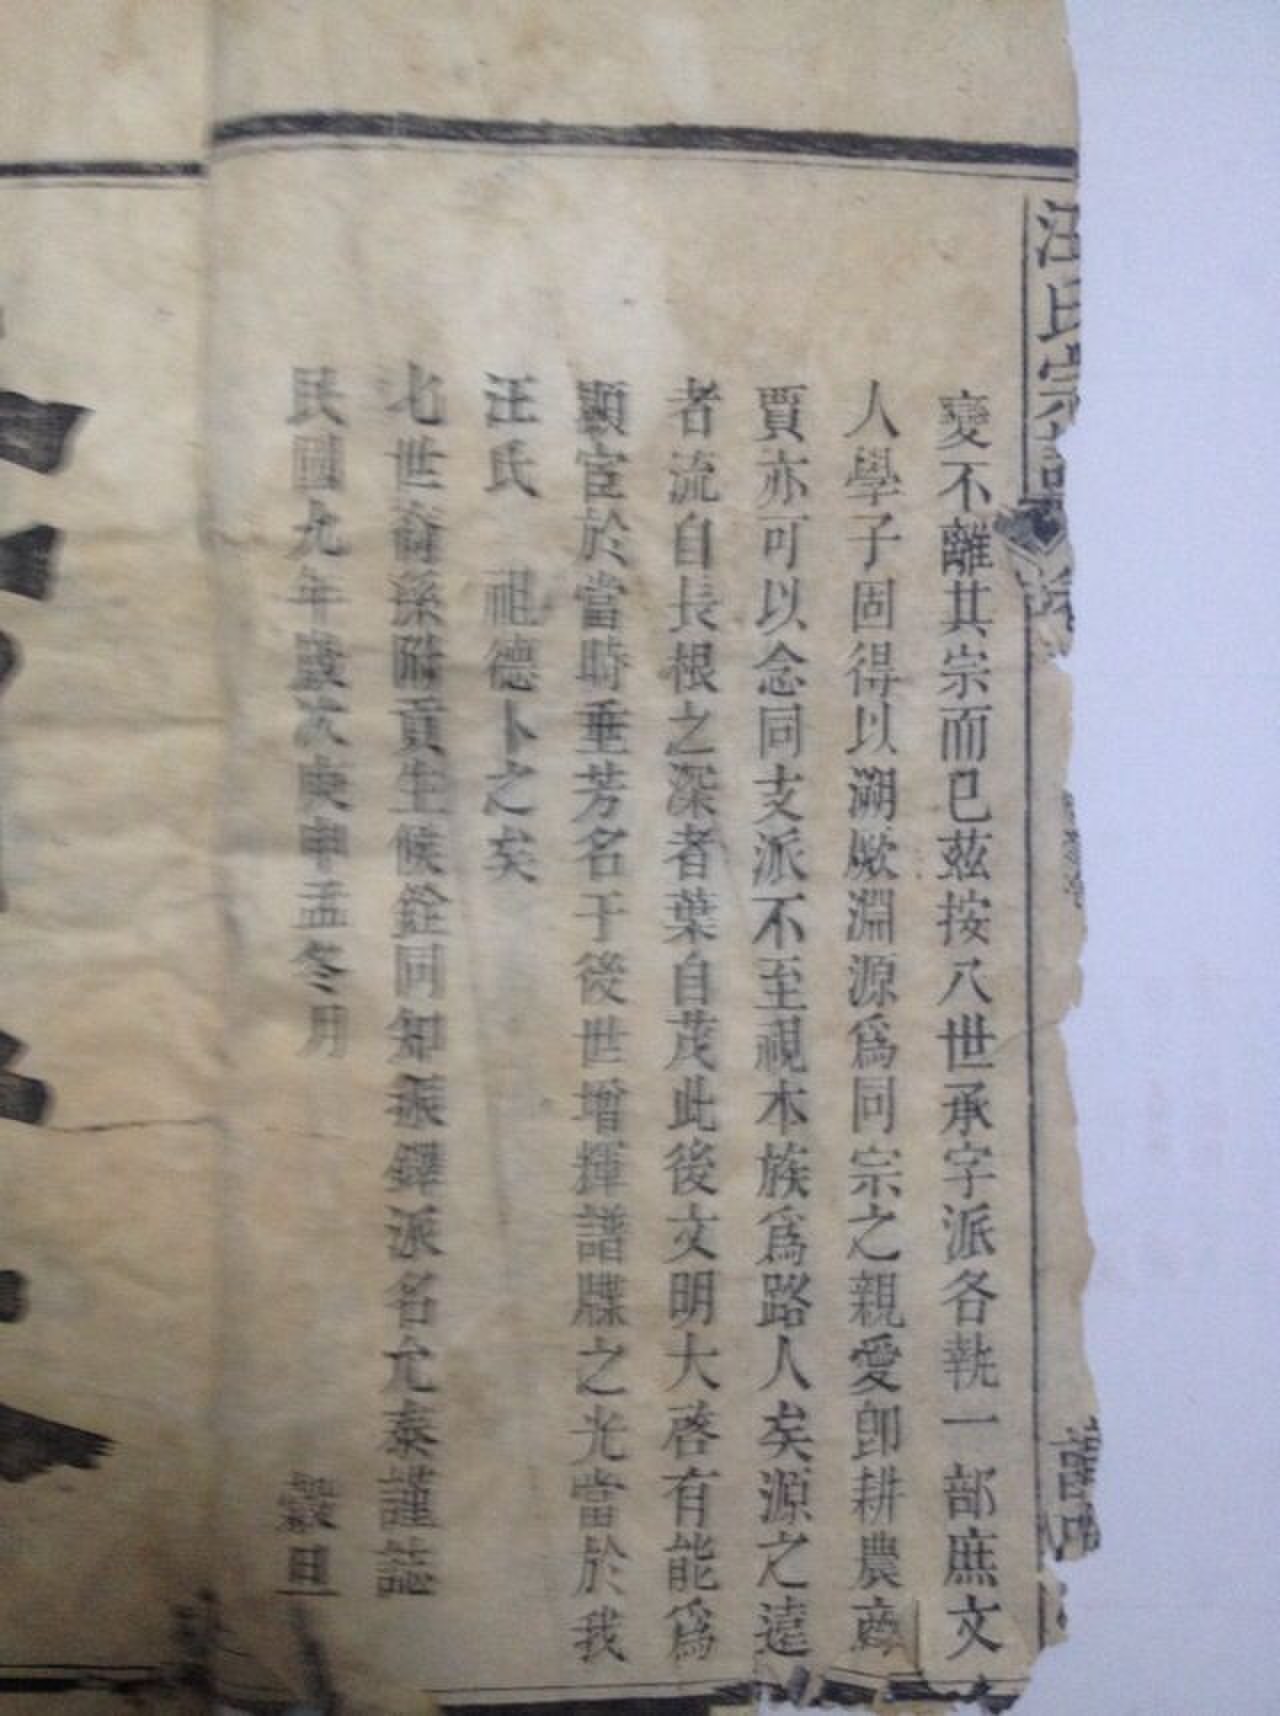 汪氏宗譜
變不離其宗而已茲按八世承字派各執一部庶文
人學子固得以溯厥淵源爲同宗之親愛卽耕農商
賈亦可以念同支派不至視本族爲路人矣源之遠
者流自長根之深者葉自茂此後文明大啓有能爲
顯宦於當時垂芳名于後世增揮譜牒之光當於我
汪氏　祖德卜之矣
七世裔孫附貢生候銓同知振鐸派名允泰謹誌
民國九年歲次庚申孟冬月　穀旦